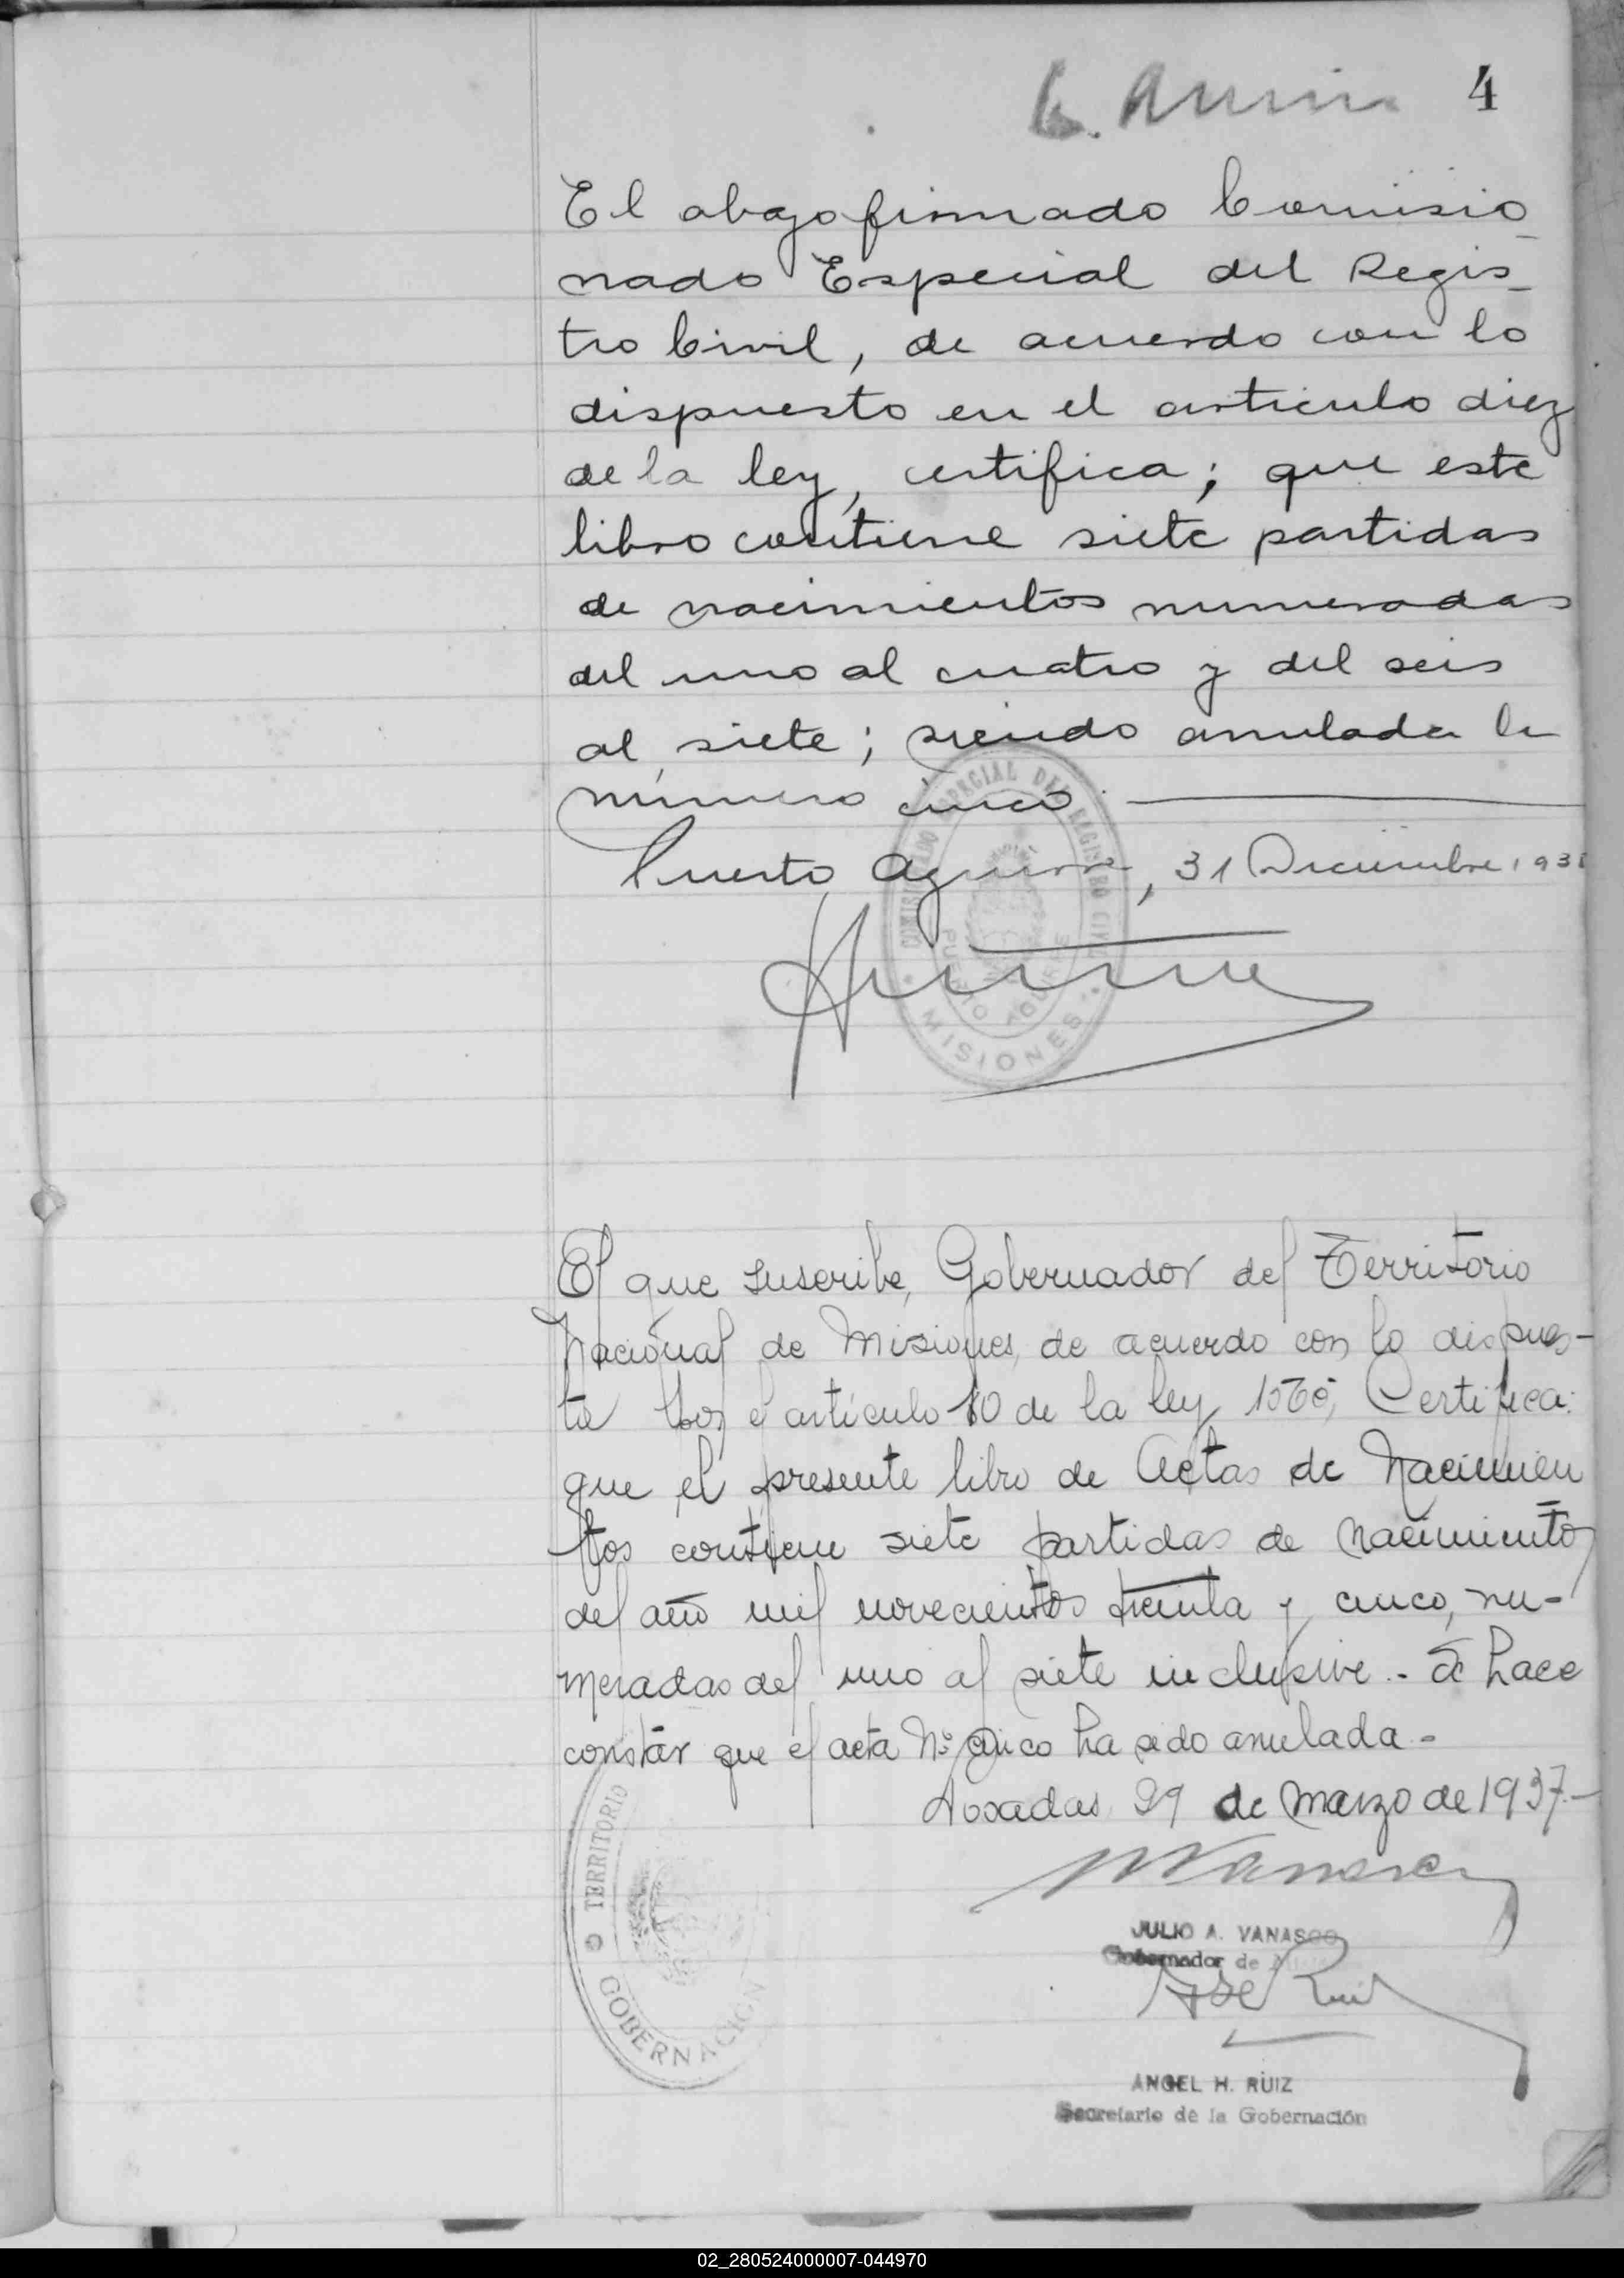 4
El abajo firmado Comisio
nado Especial del Regis_
tro Civil, de acuerdo con lo
dispuesto en el articulo diez
de la ley, certifica; que este
libro contiene siete partidas
de nacimientos numeradas
del uno al cuatro y del seis
al siete; siendo anulada la
número cinco
Puerto Aguirre, 31 Diciembre 193
COMISIONADO ESPECIAL DEL REGISTRO CIVIL
PUERTO AGUIRRE
MISIONES
El que suscribe, Gobernador del Territorio
Nacional de Misiones, de acuerdo con lo dispues-
to por el artículo 10 de la ley 1565, Certifica:
que el presente libro de Actas de Nacimien
tos contiene siete partidas de nacimientos
del año mil novecientos treinta y cinco, nu-
meradas del uno al siete inclusive.- Se hace
constar que el acta Nº cinco ha sido anulada.-
Posadas, 29 de Marzo de 1937.-
TERRITORIO
GOBERNACION
JULIO A. VANASCO
Gobernador de Misiones
ANGEL H. RUIZ
Secretario de la Gobernación
02_280524000007-044970